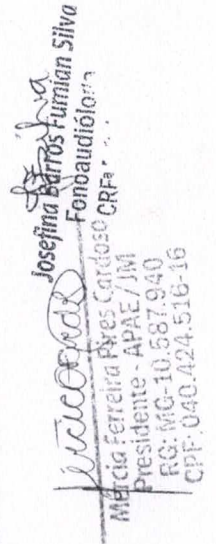 Josefina Barros Fumian Silva
Fonoaudióloga
CRFa
Mércia Ferreira Pires Cardoso
Presidente - APAE/JM
RG: MG-10.587.940
CPF: 040.424.516-16